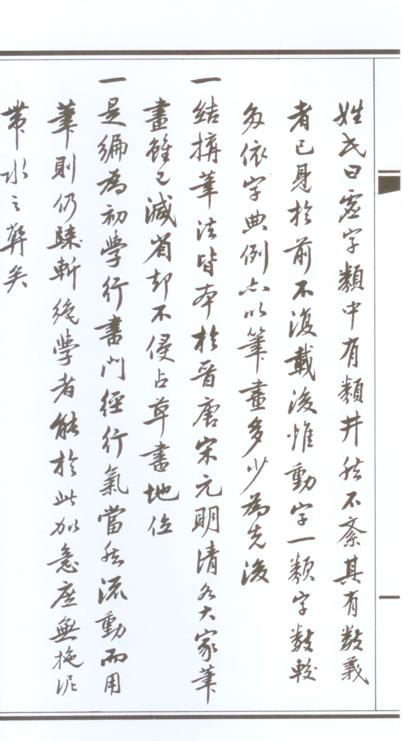 姓氏曰虛字類中有類井然不紊其有數義
者已見於前不復載後惟動字一類字數較
多依字典例亦以筆畫多少為先後
一結搆筆法皆本於晉唐宋元明清各大家筆
畫雖已減省却不侵占草書地位
一是編為初學行書門徑行氣當然流動而用
筆則仍斬學者能於此加意庶無拖泥
帶水之弊矣